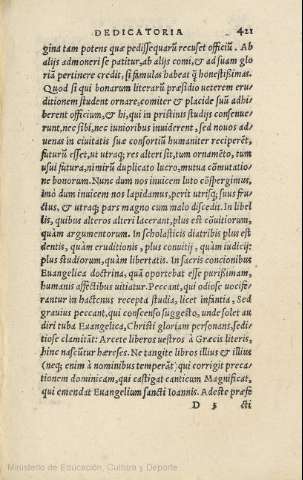 DEDICATORIA 421
gina tam potens quæ pedissequarū recuset officiū. Ab
alijs admoneri se patitur, ab alijs comi, & ad suam glo
riā pertinere credit, si famulas habeat q̃ honestissimas.
Quod si qui bonarum literarū præsidio ueterem eru-
ditionem student ornare, comiter & placide suū adhi
berent officium, & hi, qui in pristinis studijs consenue
runt, nec sibi, nec iunioribus inuiderent, sed nouos ad-
uenas in ciuitatis suæ consortiū humaniter reciperēt,
futurū esset, ut utraq; res alteri sit, tum ornamēto, tum
usui futura, nimirū duplicato lucro, mutua cōmutatio
ne bonorum. Nunc dum nos inuicem luto cōspergimus,
imò dum inuicem nos lapidamus, perit utrisq; suus fru
ctus. & utraq; pars magno cum malo discedit. In libel
lis, quibus alteros alteri lacerant, plus est cōuitiorum,
quàm argumentorum. In scholasticis diatribis plus est
dentis, quàm eruditionis, plus conuitij, quàm iudicij:
plus studiorum, quàm libertatis. In sacris concionibus
Euangelica doctrina, quā oportebat esse purissimam,
humanis affectibus uitiatur. Peccant, qui odiose uocife
rantur in hactenus recepta studia, licet infantia, Sed
grauius peccant, qui consenso suggesto, unde solet au
diri tuba Euangelica, Christi gloriam personans, sedi-
tiose clamitāt: Arcete liberos uestros à Græcis literis,
hinc nascūtur hæreses. Ne tangite libros illius & illius
(neq; enim à nominibus temperāt) qui corrigit preca-
tionem dominicam, qui castigat canticum Magnificat,
qui emendat Euangelium sancti Ioannis. Adeste præfe
D 3 cti
Ministerio de Educación, Cultura y Deporte